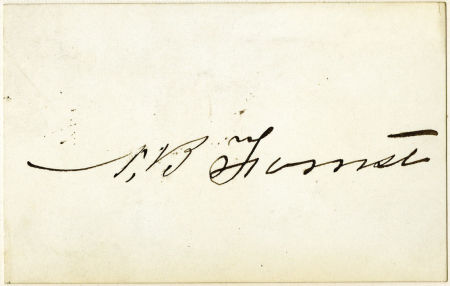 N. B Forrest